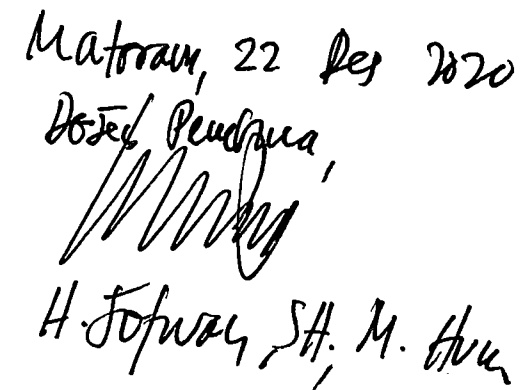 Mataram, 22 Des 2020
Dosen Pembina,
H. Sofwan, SH. M. Hum